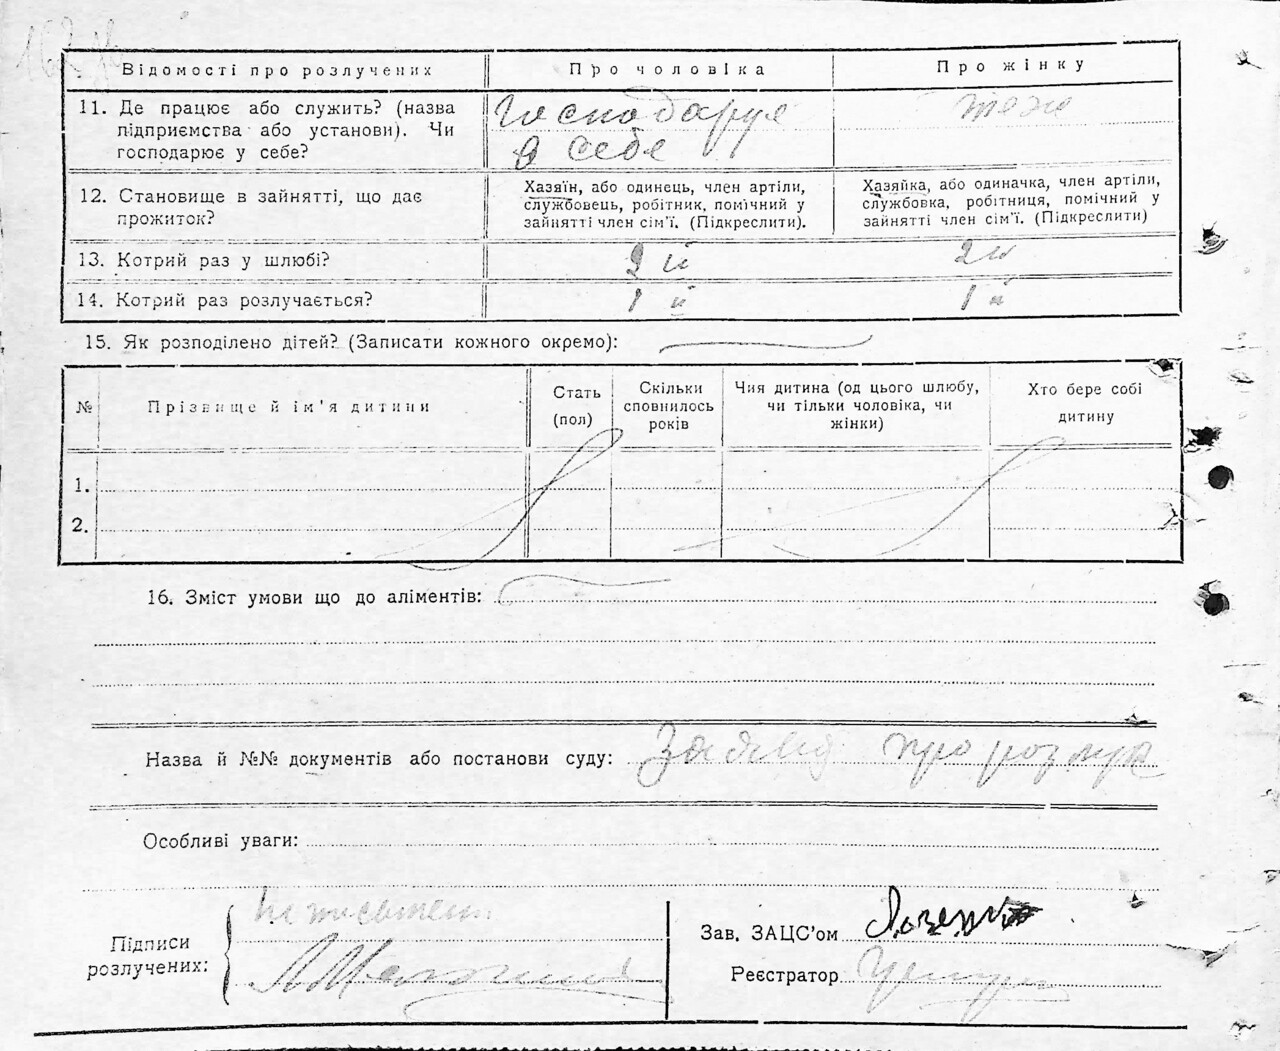 Відомості про розлучених Про чоловіка Про жінку
11. Де працює або служить? (назва підприємства або установи). Чи господарює у себе?
Господарує
в себе
теж
12. Становище в зайнятті, що дає прожиток?
Хазяїн, або одинець, член артіли, службовець, робітник, помічний у зайнятті член сім'ї. (Підкреслити).
Хазяйка, або одиначка, член артіли, службовка, робітниця, помічний у зайнятті член сім'ї. (Підкреслити)
13. Котрий раз у шлюбі? 2 й 2 й
14. Котрий раз розлучається? 1 й 1 й
15. Як розподілено дітей? (Записати кожного окремо):
№ Прізвище й ім'я дитини Стать (пол) Скільки сповнилось років Чия дитина (од цього шлюбу, чи тільки чоловіка, чи жінки) Хто бере собі дитину
1.
2.
16. Зміст умови що до аліментів:
Назва й №№ документів або постанови суду: Заява про розлуку
Особливі уваги:
Підписи розлучених:
Зав. ЗАЦС'ом
Реєстратор